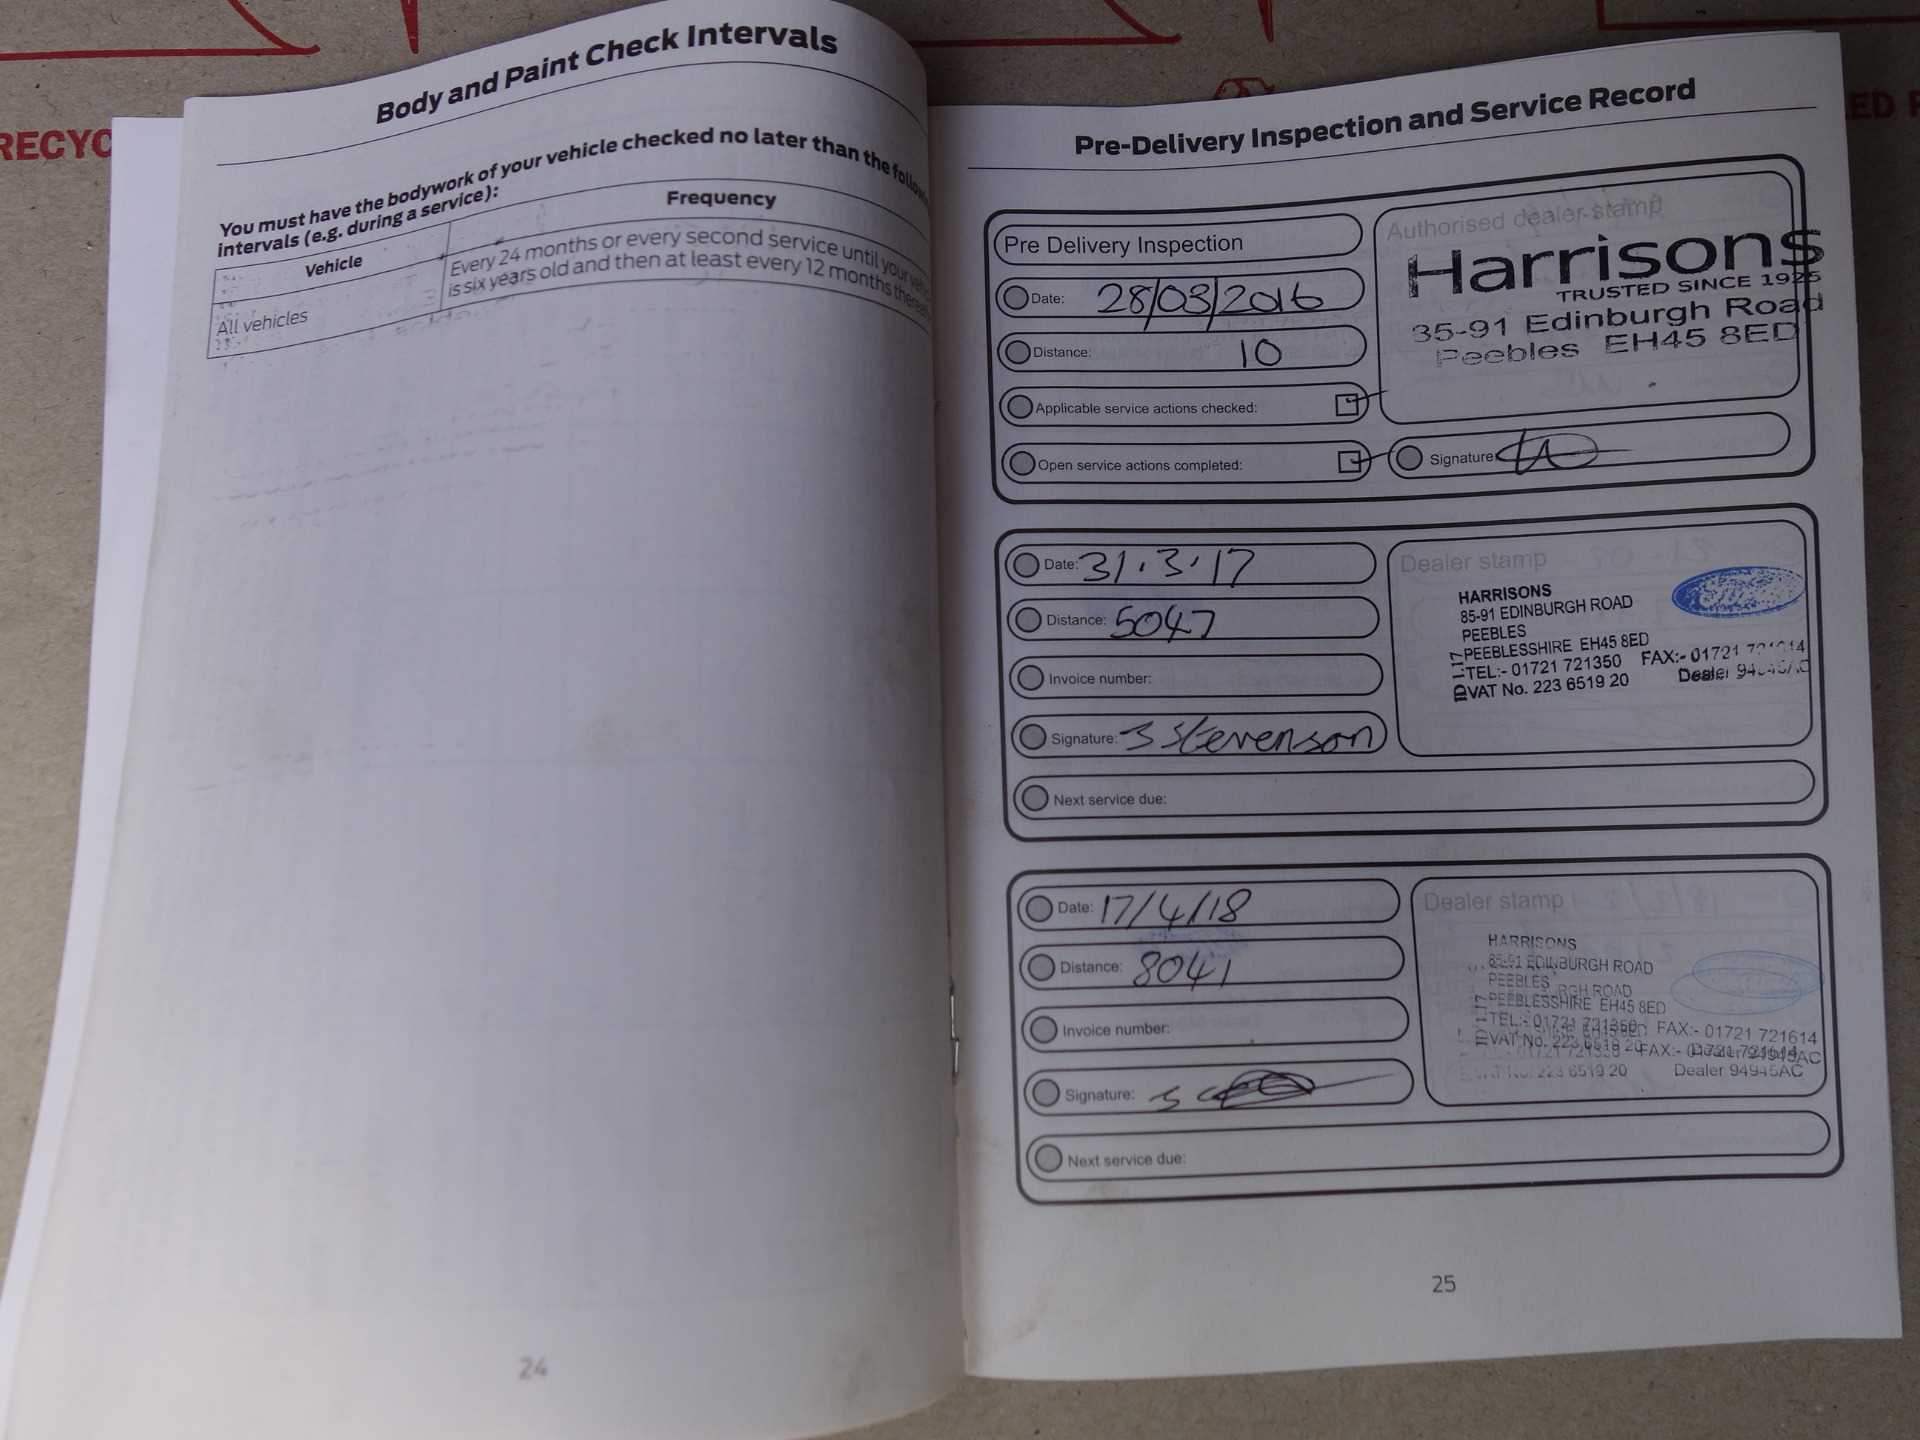 RECYC
ED
Body and Paint Check Intervals
You must have the bodywork of your vehicle checked no later than the
intervals (e.g. during a service):
Vehicle
Frequency
All vehicles
Every 24 months or every second service until your
is six years old and then at least every 12 months
24
Pre-Delivery Inspection and Service Record
Pre Delivery Inspection
Date: 28/03/2016
Distance: 10
Applicable service actions checked:
Open service actions completed:
Authorised dealer stamp
Harrisons
TRUSTED SINCE 1925
35-91 Edinburgh Road
Peebles EH45 8ED
Signature:
Date: 31.3.17
Distance: 5047
Invoice number:
Signature: S Stevenson
Next service due:
Dealer stamp
HARRISONS
85-91 EDINBURGH ROAD
PEEBLES
PEEBLESSHIRE EH45 8ED
TEL:- 01721 721350 FAX:- 01721
VAT No. 223 6519 20 Dealer
Date: 17/4/18
Distance: 8041
Invoice number:
Signature: S
Next service due:
Dealer stamp
HARRISONS
85-91 EDINBURGH ROAD
PEEBLES
RGH ROAD
PEEBLESSHIRE EH45 8ED
TEL:- 01721 721350 FAX:- 01721 721614
VAT No. 223 6519 20
FAX:- 01721 721614
223 6519 20 Dealer 94945AC
25